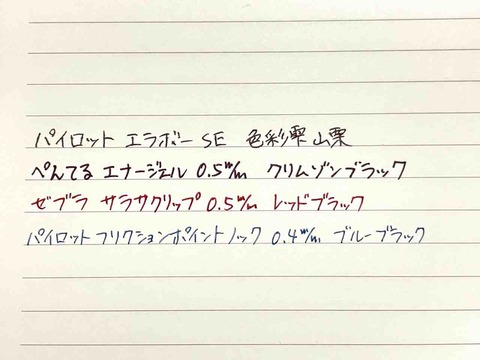 パイロット エラボー SE 色彩雫 山栗
ぺんてる エナージェル 0.5m/m クリムゾンブラック
ゼブラ サラサクリップ 0.5m/m レッドブラック
パイロット フリクションポイントノック 0.4m/m ブルーブラック